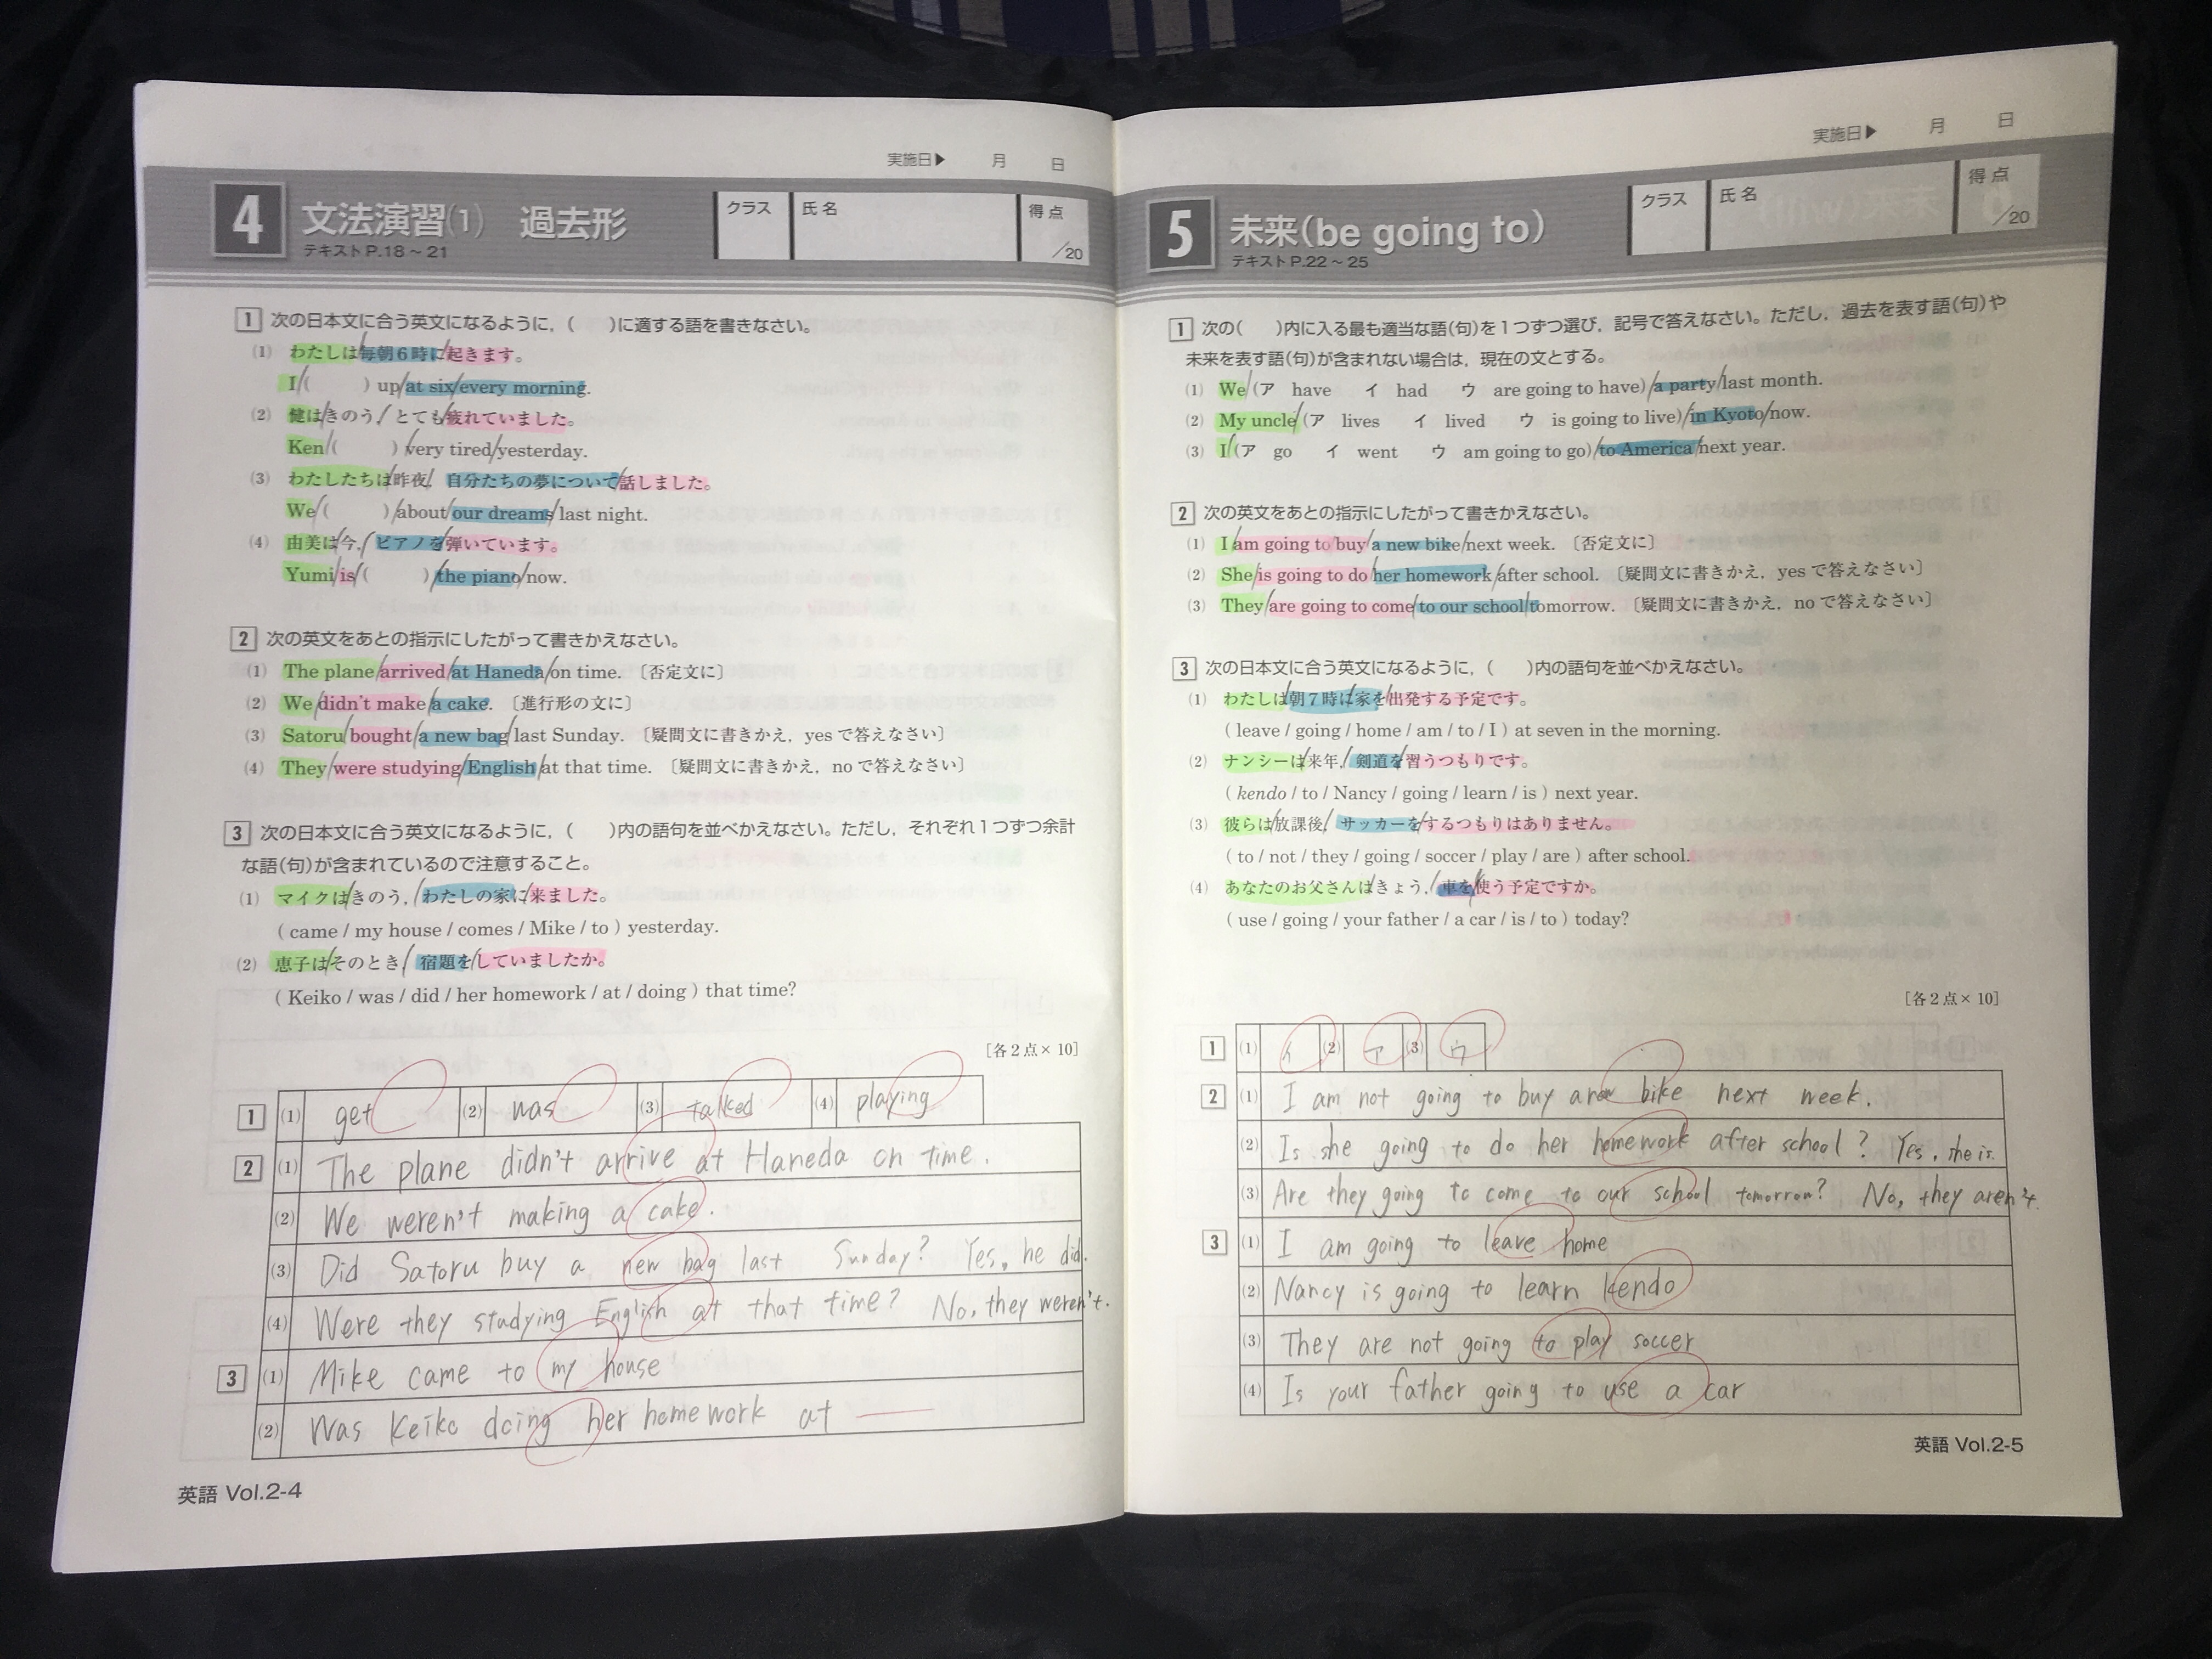 実施日▶ 月 日
4 文法演習(1) 過去形
テキストP.18～21
クラス 氏名 得点 /20
1 次の日本文に合う英文になるように,( )に適する語を書きなさい。
(1) わたしは/毎朝6時に/起きます。
I/( ) up/at six/every morning.
(2) 健は/きのう,/とても/疲れていました。
Ken/( )/very tired/yesterday.
(3) わたしたちは/昨夜,/自分たちの夢について/話しました。
We/( )/about/our dreams/last night.
(4) 由美は/今,/ピアノを/弾いています。
Yumi/is/( )/the piano/now.
2 次の英文をあとの指示にしたがって書きかえなさい。
(1) The plane/arrived/at Haneda/on time. 〔否定文に〕
(2) We/didn't make/a cake. 〔進行形の文に〕
(3) Satoru/bought/a new bag/last Sunday. 〔疑問文に書きかえ, yesで答えなさい〕
(4) They/were studying/English/at that time. 〔疑問文に書きかえ, noで答えなさい〕
3 次の日本文に合う英文になるように,( )内の語句を並べかえなさい。ただし,それぞれ1つずつ余計
な語(句)が含まれているので注意すること。
(1) マイクは/きのう,/わたしの家に/来ました。
( came / my house / comes / Mike / to ) yesterday.
(2) 恵子は/そのとき/宿題を/していましたか。
( Keiko / was / did / her homework / at / doing ) that time?
[各2点×10]
1 (1) get (2) was (3) talked (4) playing
2 (1) The plane didn't arrive at Haneda on time.
(2) We weren't making a cake.
(3) Did Satoru buy a new bag last Sunday? Yes, he did.
(4) Were they studying English at that time? No, they weren't.
3 (1) Mike came to my house
(2) Was Keiko doing her homework at
英語 Vol.2-4
実施日▶ 月 日
5 未来(be going to)
テキストP.22～25
クラス 氏名 得点 /20
1 次の( )内に入る最も適当な語(句)を1つずつ選び,記号で答えなさい。ただし,過去を表す語(句)や
未来を表す語(句)が含まれない場合は,現在の文とする。
(1) We/(ア have イ had ウ are going to have)/a party/last month.
(2) My uncle/(ア lives イ lived ウ is going to live)/in Kyoto/now.
(3) I/(ア go イ went ウ am going to go)/to America/next year.
2 次の英文をあとの指示にしたがって書きかえなさい。
(1) I/am going to buy/a new bike/next week. 〔否定文に〕
(2) She/is going to do/her homework/after school. 〔疑問文に書きかえ, yesで答えなさい〕
(3) They/are going to come/to our school/tomorrow. 〔疑問文に書きかえ, noで答えなさい〕
3 次の日本文に合う英文になるように,( )内の語句を並べかえなさい。
(1) わたしは/朝7時に/家を/出発する予定です。
( leave / going / home / am / to / I ) at seven in the morning.
(2) ナンシーは/来年,/剣道を/習うつもりです。
( kendo / to / Nancy / going / learn / is ) next year.
(3) 彼らは/放課後,/サッカーを/するつもりはありません。
( to / not / they / going / soccer / play / are ) after school.
(4) あなたのお父さんは/きょう,/車を/使う予定ですか。
( use / going / your father / a car / is / to ) today?
[各2点×10]
1 (1) イ (2) ア (3) ウ
2 (1) I am not going to buy a new bike next week.
(2) Is she going to do her homework after school? Yes, she is.
(3) Are they going to come to our school tomorrow? No, they aren't.
3 (1) I am going to leave home
(2) Nancy is going to learn kendo
(3) They are not going to play soccer
(4) Is your father going to use a car
英語 Vol.2-5